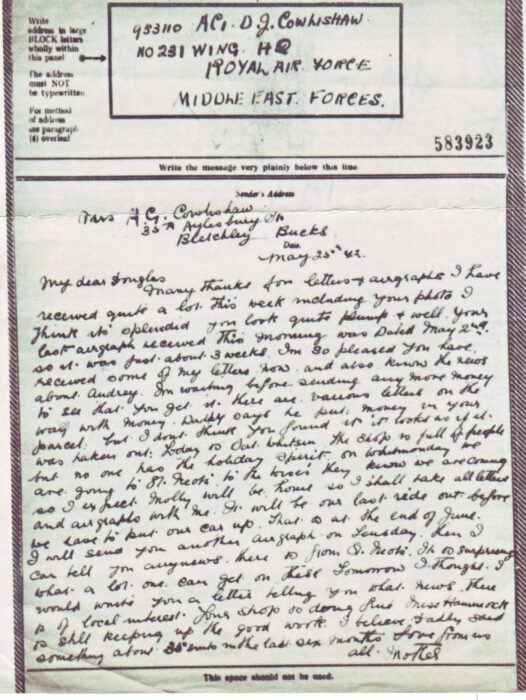 Write
address in large
BLOCK letters
wholly within
this panel
The address
must NOT
be typewritten
For method
of address
see paragraph
(4) overleaf
953110 AC1. D.J. COWLISHAW
NO 231 WING. HQ
ROYAL AIR FORCE
MIDDLE EAST. FORCES.
583923
Write the message very plainly below this line
Sender's Address
Mrs A.G. Cowlishaw
35A Aylesbury St
Bletchley Bucks
Date
May 23rd 42.
My dear Douglas
Many thanks for letters & airgraphs I have
received quite a lot this week including your photo I
think its splendid you look quite plump & well. Your
last airgraph received this morning was Dated May 2nd.
so it was just about 3 weeks. Im so pleased you have
received some of my letters now. and also know the news
about Audrey. Im waiting before sending any more money
to see that you get it. there are various letters on the
way with money. says he put money in your
parcel. but I dont think you found it it looks as if it
was taken out: today is Sat. Whitsun the shop is full of people
but no one has the holiday spirit. on Whitmonday we
are going to St. Neots to the they know we are coming
so I expect Molly will be home so I shall take all letters
and airgraphs with me. It will be our last ride out before
we have to put our car up. That is at the end of June.
I will send you another airgraph on Tuesday. then I
can tell you any news. there is from St. Neots. It is surprising
what a lot one can get on these Tomorrow I thought I
would write you a letter telling you what news there
is of local interest. Your shop is doing fine Miss Hammock
is still keeping up the good work. I believe Daddy said
something about 35 in the last six months love from us
all. Mother
This space should not be used.